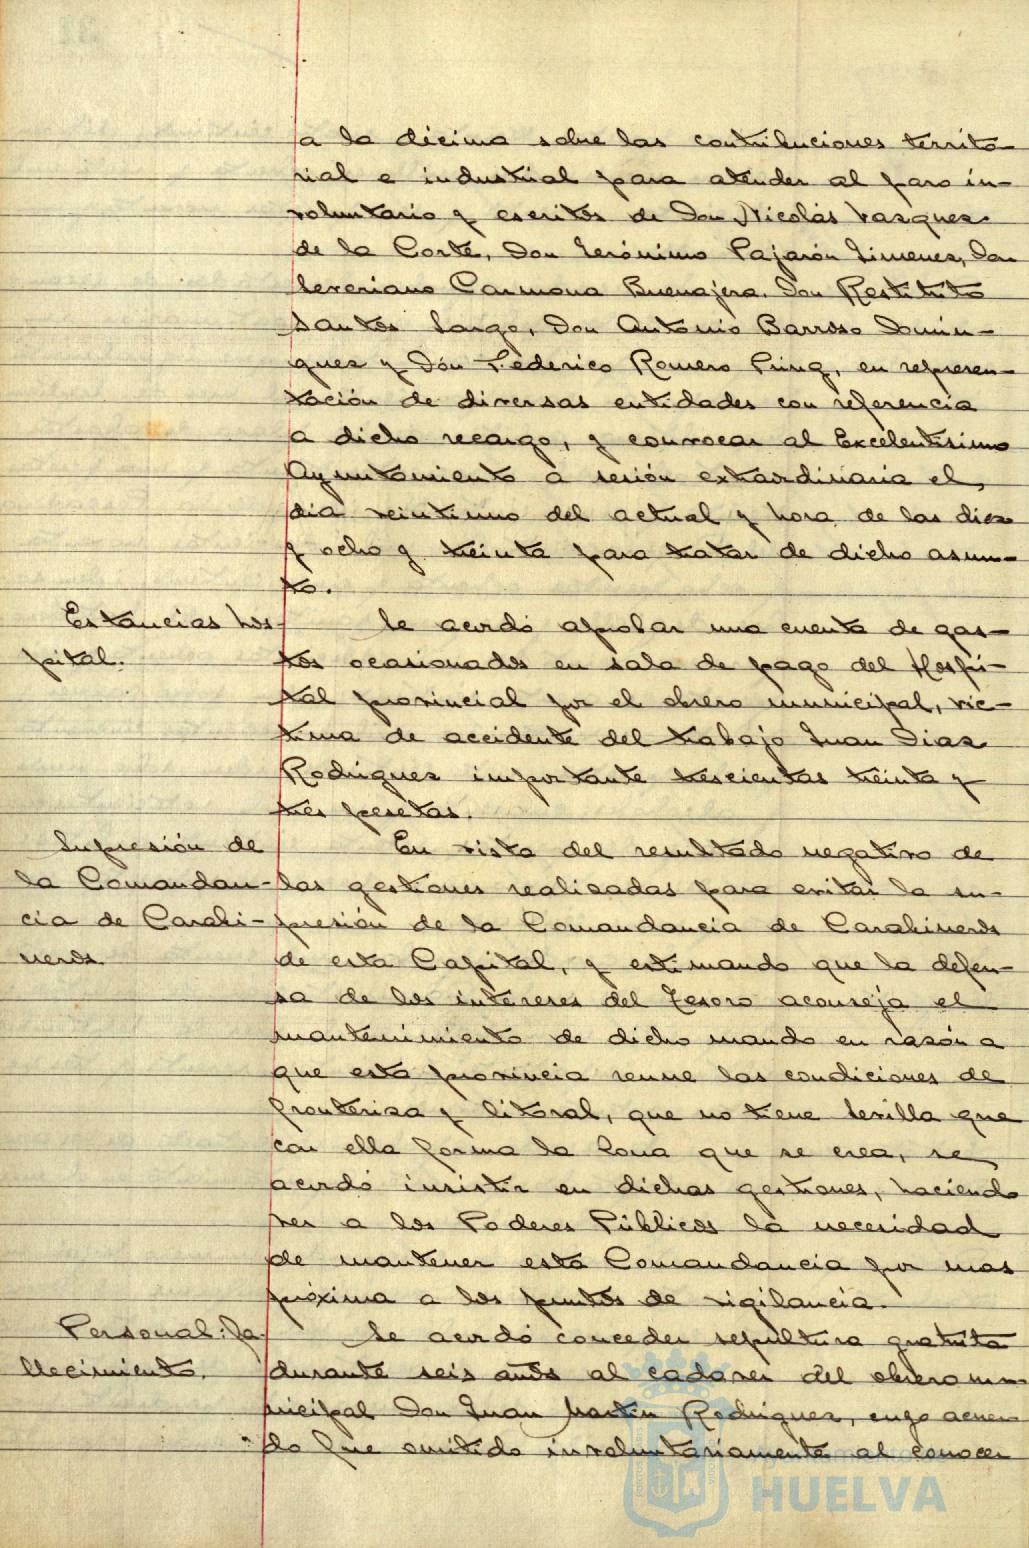 a la décima sobre las contribuciones territo-
rial e industrial para atender al paro in-
voluntario y escritos de Don Nicolás Vazquez
de la Corte, Don Jerónimo Pajarón Jimenez, Don
Severiano Carmona Buenajera, Don Restituto
Santos Largo, Don Antonio Barroso Domin-
guez y Don Federico Romero Puig, en represen-
tación de diversas entidades con referencia
a dicho recargo, y convocar al Excelentisimo
Ayuntamiento a sesión extraordinaria el
dia veintiuno del actual y hora de las diez
y ocho y treinta para tratar de dicho asun-
to.
Estancias hos-
pital.
Se acordó aprobar una cuenta de gas-
tos ocasionados en sala de pago del Hospi-
tal provincial por el obrero municipal, vic-
tima de accidente del trabajo Juan Diaz
Rodriguez importante trescientas treinta y
tres pesetas.
Supresión de
la Comandan-
cia de Carabi-
neros
En vista del resultado negativo de
las gestiones realizadas para evitar la su-
presión de la Comandancia de Carabineros
de esta Capital, y estimando que la defen-
sa de los intereses del Tesoro aconseja el
mantenimiento de dicho mando en razón a
que esta provincia reune las condiciones de
fronteriza y litoral, que no tiene Sevilla que
con ella forma la Zona que se crea, se
acordó insistir en dichas gestiones, haciendo
ver a los Poderes Públicos la necesidad
de mantener esta Comandancia por mas
próxima a los puntos de vigilancia.
Personal: fa-
llecimiento.
Se acordó conceder sepultura gratuita
durante seis años al cadaver del obrero mu-
nicipal Don Juan Martin Rodriguez, cuyo acuer-
do fue omitido involuntariamente al conocer
HUELVA